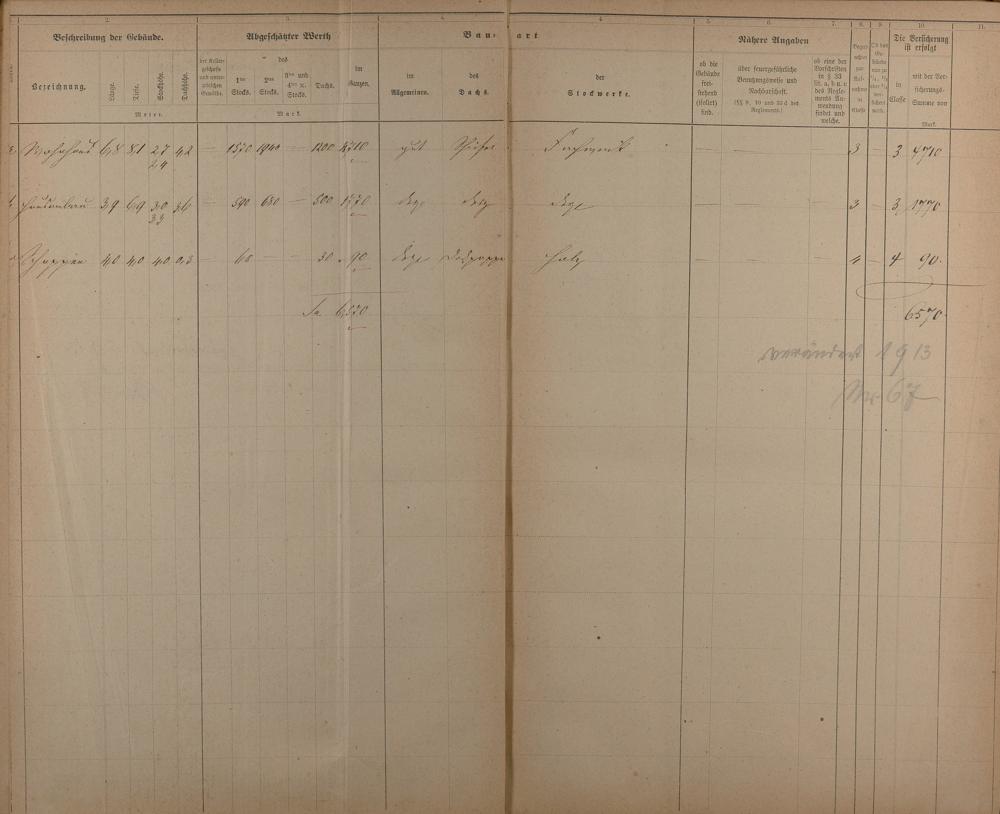 2. 3. 4. 4. 5. 6. 7. 8. 9. 10. 11.
Beschreibung der Gebäude. Abgeschätzter Werth Bau- art Nähere Angaben Die Versicherung ist erfolgt
Bezeichnung. Länge. Tiefe. Stockhöhe. Dachhöhe.
des
1ten Stocks. 2ten Stocks. 3ten und 4ten x. Stocks. Dachs. im Ganzen.
im Allgemeinen. des Dachs. der Stockwerke.
ob die Gebäude freistehend (isolirt) sind.
über feuergefährliche Benutzungsweise und Nachbarschaft.
(§§ 9, 10 und 33 d des Reglements.)
ob eine der Vorschriften in § 33 lit. a, b u. c des Reglements Anwendung findet und welche.
in Classe mit der Versicherungs-Summe von
Meter. Mark. Mark.
Wohnhaus 6,8 8,1 2,7 4,2 — 1570 1940 — 1200 4710 gut Schiefer Fachwerk — — — 3 — 3 4710
2,4
3,9 6,9 3,0 3,6 — 590 680 — 500 1770 desgl desgl desgl — — — 3 — 3 1770
3,3
Schuppen 4,0 4,0 4,0 0,3 — 60 — — 30 90 desgl Dachpappe Holz — — — 4 — 4 90.
Sa 6570 6570
verändert 1913
Nr. 67